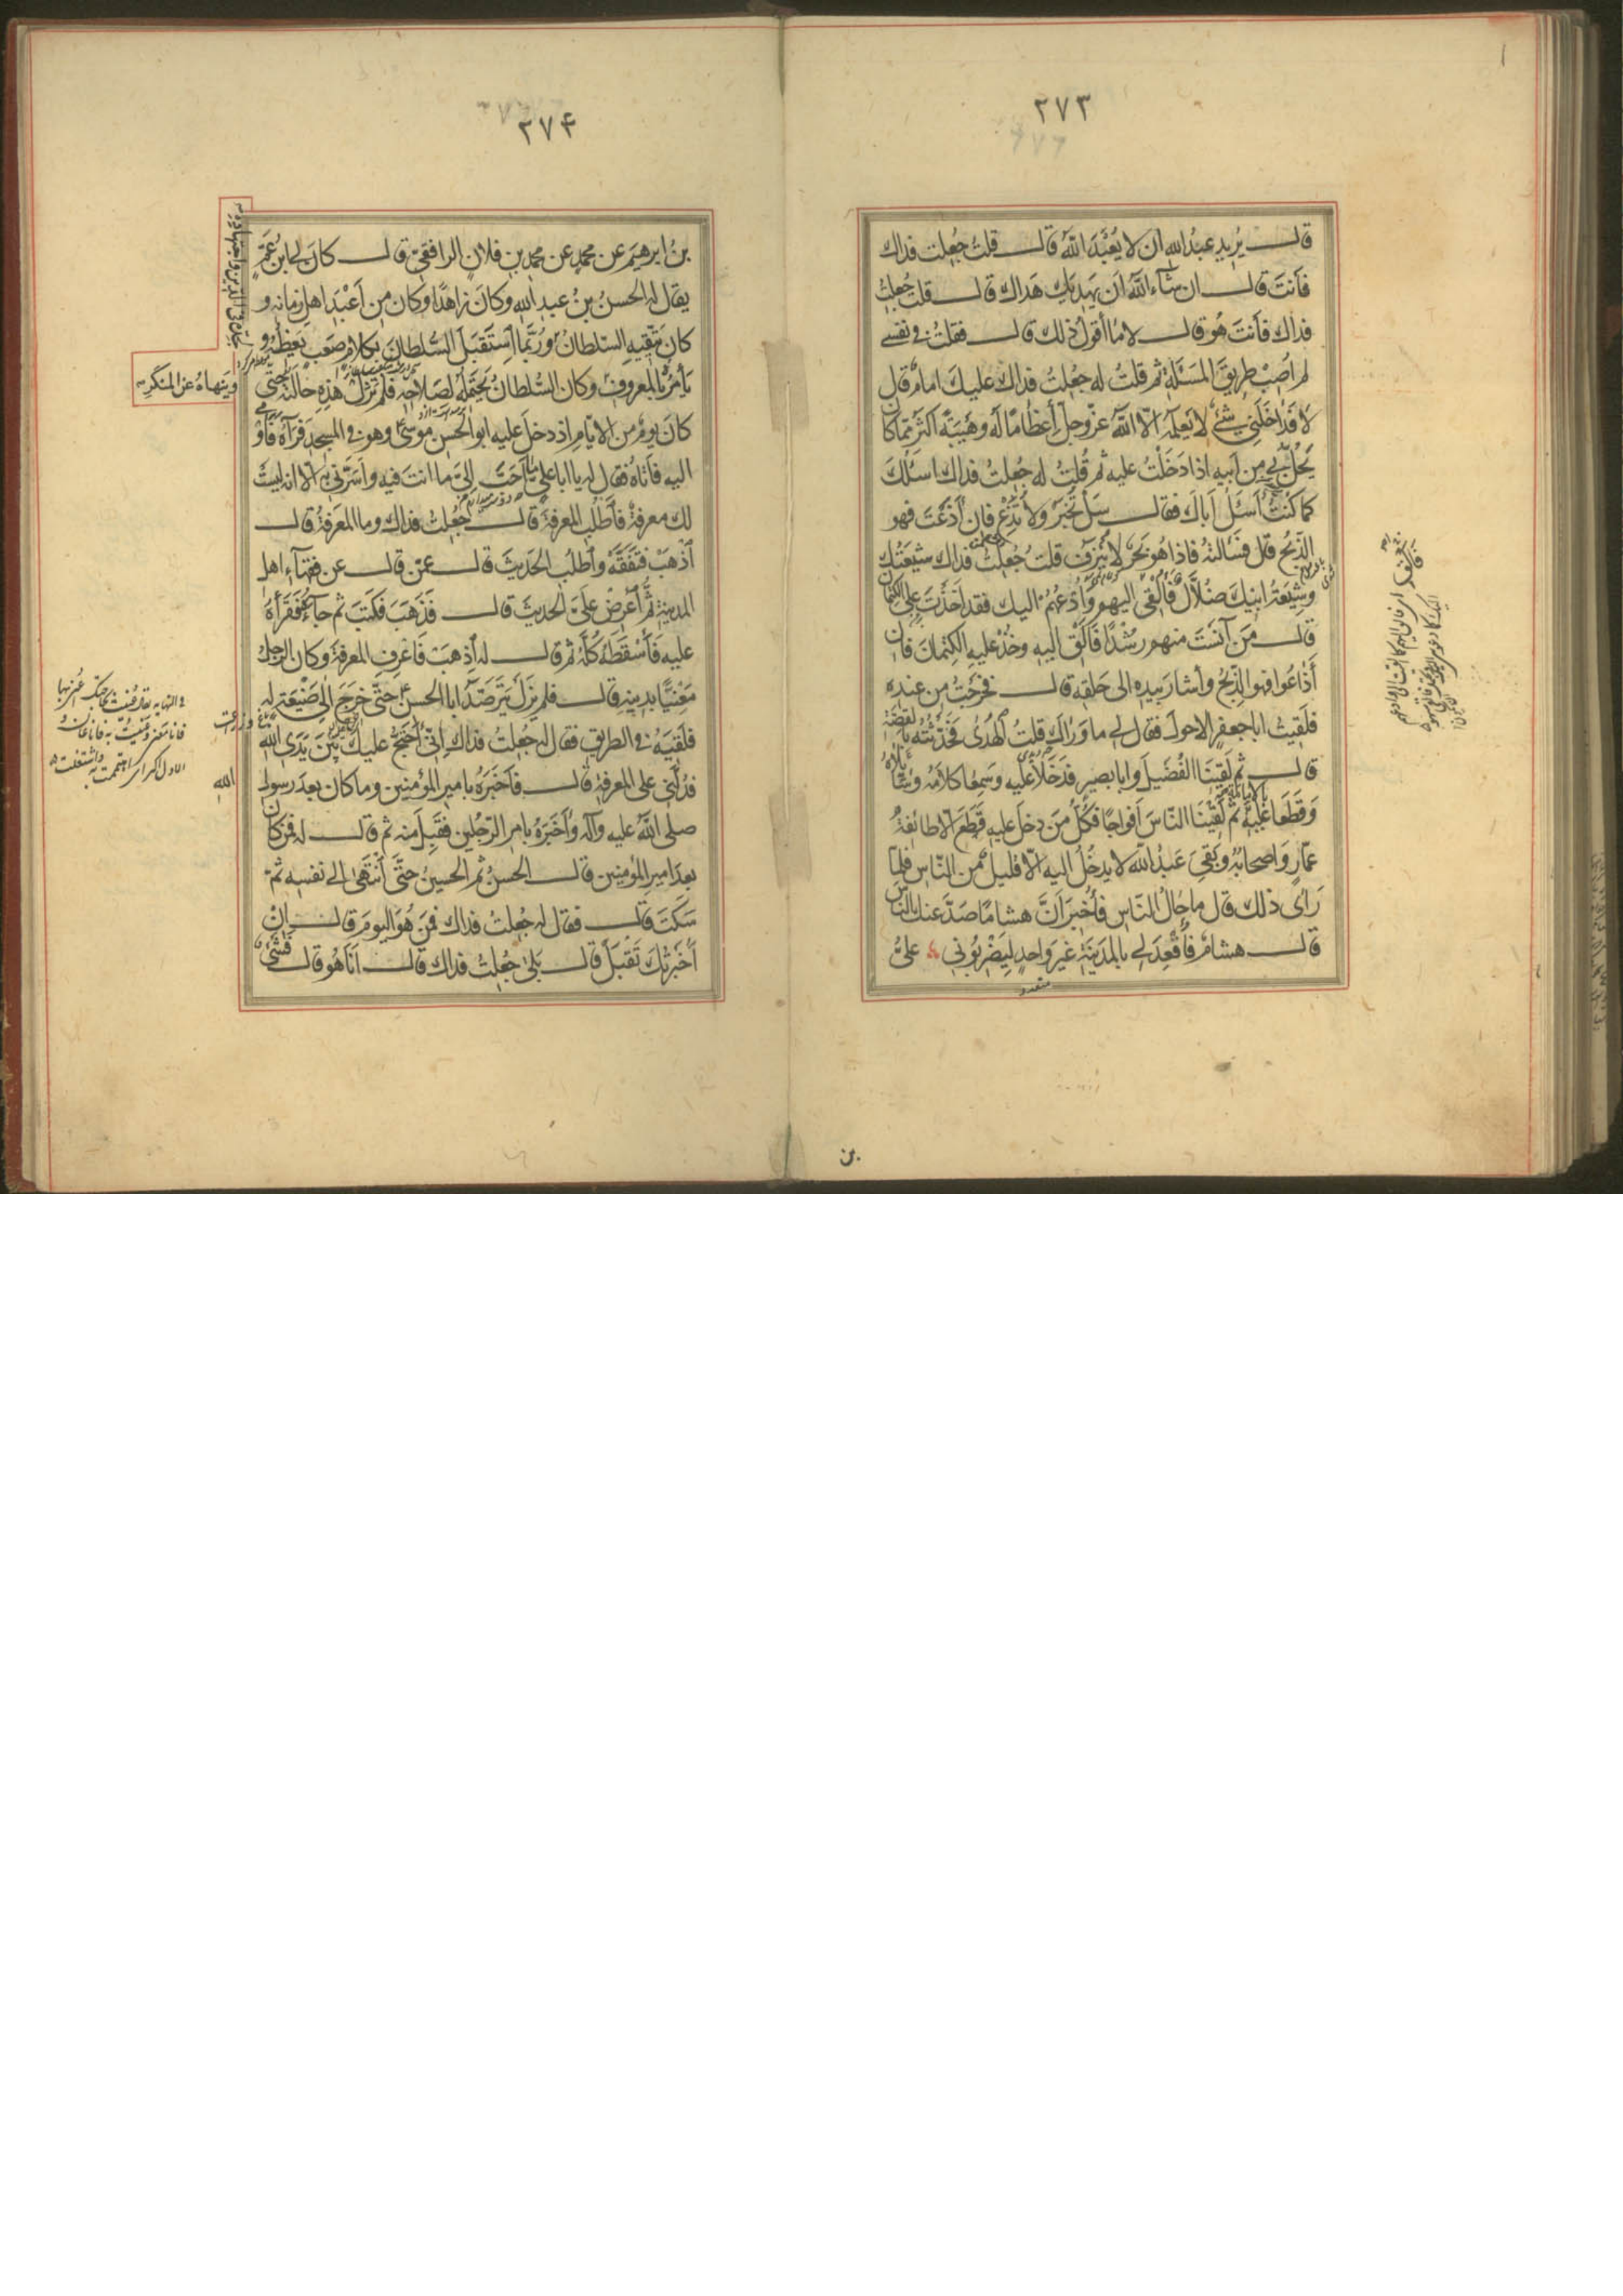 ٢٧٣
قال يُريد عبدُ الله ان لا يُعْبَدَ اللهُ قال قلتُ جُعِلت فداك
فَأنتَ قال ان شآء اللهُ اَن يَهديَك هَداك قال قلتُ جُعِلتُ
فداك فَأنتَ هُو قال لا ما أقول ذلك قال فقلتُ في نفسي
لم اُصِب طريقَ المسَئلة ثم قلتُ له جُعِلتُ فداك عليكَ امامٌ قال
لا فَدَاخَلَني شيءٌ لا يَعلَمُه الّا اللهُ عزّوجلّ أِعظامًا لَه وهَيبَةً اكثَر ممّا كان
يَحُلّ بي من اَبيه اذا دَخَلتُ عليه ثم قُلتُ له جُعِلتُ فداك اسئلكَ
كما كنتُ اَسئَلُ اَباكَ فقال سَل تُخبَر ولا تُذِع فان أذَعتَ فهو
الذّبحُ قال فسَألتُه فاذا هو بَحرٌ لا يُنزَف قلت جُعِلتُ فداك شيعتُك
وشيعَةُ ابيكَ ضُلّالٌ فاُلقي اليهم وَاَدعُهُم اليك فقد اَخَذتَ عليّ الكتمان
قال مَن آنَستَ منهم رُشْدًا فَاَلقِ اليه وخُذ عليهِ الكتمان فان
أذاعُوا فهو الذّبحُ وأشار بيده الى حَلقه قال فخرجتُ من عنده
فلقيتُ ابا جعفر الاحول فقال لي ما وَرَاك قلتُ الهُدَى فحدّثتُه بالقصّة
قال ثم لقينا الفُضَيل وابا بصير فدَخَلا عليه وسَمِعا كلامَه وسَألاهُ
وَقَطَعا عَلَيه ثم لَقينا الناسَ اَفواجًا فكُلّ مَن دخل عليه قَطَعَ الّا طائفةُ
عمّارٍ واَصحابُه وبَقِيَ عَبدُ الله لا يدخُلُ اليه الّا قليلٌ من النّاس فلمّا
رَاَى ذلك قال ما حالُ الناس فأُخبِرَ اَنّ هشامًا صَدّ عنك النّاسَ
قال هشامٌ فأقعَدَ لي بالمدينة غيرَ واحدٍ ليَضربُوني علىّ
متعدد
بن
٢٧٤
بنُ ابرهيم عن محمدٍ عن محمد بن فلان الرافقيّ قال كان لي ابن عَمٍّ
يقال له الحسنُ بنُ عبد الله وكان زاهدًا وكان من أعبَد اهل زمانه و
كان يَتّقيهِ السّلطانُ ورُبّما استَقبَلَ السُّلطانَ بكلامٍ صَعبٍ يَعِظُه و
يَأمُرُه بالمعروفِ وكان السُّلطانُ يَحتَمِلُه لصَلاحه فلم تَزَل هذه حالته حتى
ويَنهاهُ عن المنكَر
كان يومٌ من الايّام اذ دخل عليه ابو الحسن موسى وهو في المسجد فرَآهُ فَاَوْمى
اليه فَأتاه فقال له يا ابا علي ما اَحَبّ اليَّ ما انتَ فيه واَسَرّني به الّا انه ليست
لك معرفةٌ فاَطلُبِ المعرفةَ قال جُعِلتُ فداك وما المعرفةُ قال
اُذهَب فتَفَقّه واُطلُب الحديثَ قال عمّن قال عن فقهآء اهل
المدينةِ ثم اَعرِض عليّ الحديثَ قال فَذَهَبَ فكتَبَ ثم جآءَهُ فقَرَأهُ
عليه فَأسقَطَه كُلَّه ثم قال له اُذهَب فَاَعرِفِ المعرفةَ وكان الرجلُ
مَعنيًّا بدينه قال فلم يَزَل يَترَصّد ابا الحسن حتى خرج الى ضَيعةٍ له
فلقيَه في الطريق فقال له جُعِلتُ فداك انّي اَحتَجّ عليك بين يَدَي الله
فدُلّني على المعرفة قال فَاَخبَرَهُ بامير المؤمنين وما كان بعدَ رسول
الله
صلى الله عليه وآله وأخبَرَه بامر الرّجلين فقَبِلَ منه ثم قال له فمَن كان
بعدَ امير المؤمنين قال الحسنُ ثم الحسينُ حتّى انتَهى الى نفسه ثم
سَكتَ قال فقال له جُعِلتُ فداك فمَن هُوَ اليوم قال اِنْ
أخبَرتُك تَقبَلُ قال بَلى جُعِلتُ فداك قال اَنَا هُو قال فشَيءٌ